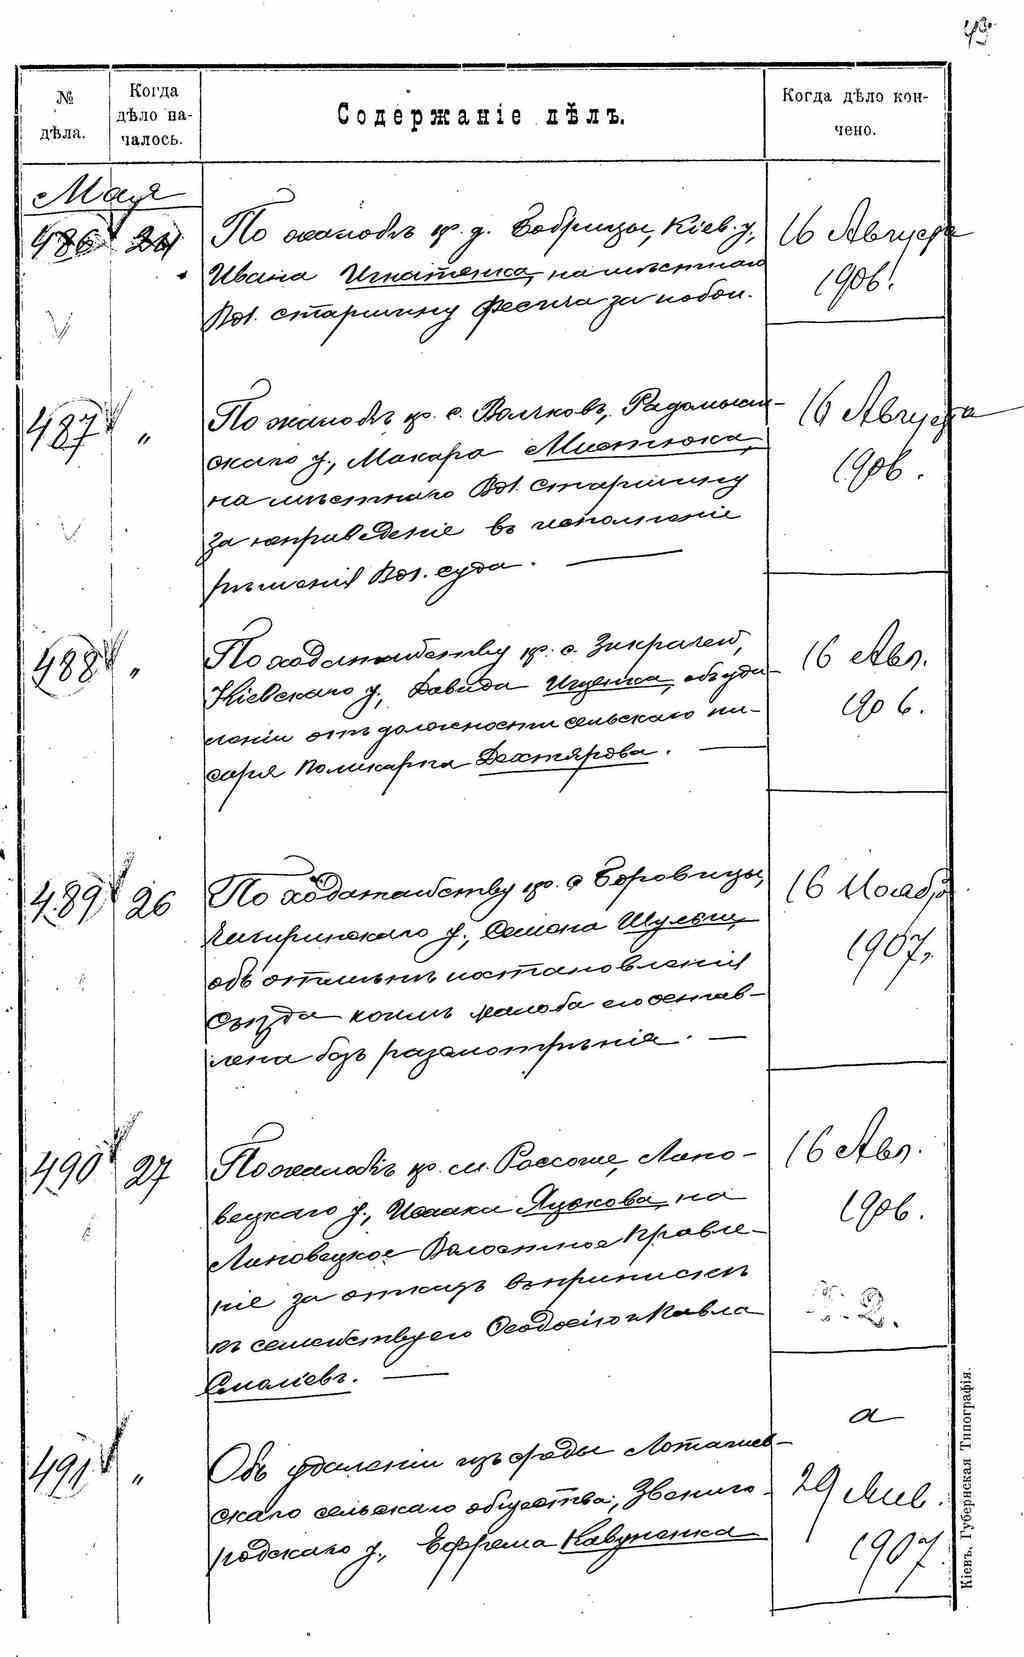 49
№ дѣла.
Когда дѣло началось.
Содержаніе дѣлъ.
Когда дѣло кончено.
Мая
486 24
По жалобѣ кр. д. Бобрицы, Кіев. у.,
Ивана Игнатенка, на мѣстнаго
Вол. старшину Фесича за побои.
16 Августа
1906.
487 "
По жалобѣ кр. с. Волчковъ, Радомысль-
скаго у., Макара Мистюка,
на мѣстнаго Вол. старшину
за неприведеніе въ исполненіе
рѣшенія Вол. суда.
16 Августа
1906.
488 "
По ходатайству кр. с. Зикрачей,
Кіевскаго у., Давида Ищенка, объ уда-
леніи отъ должности сельскаго пи-
саря Поликарпа Дехтярова.
16 Авг.
1906.
489 26
По ходатайству кр. с. Боровицы,
Чигиринскаго у., Семена Шульги,
объ отмѣнѣ постановленія
Съѣзда коимъ жалоба его остав-
лена безъ разсмотрѣнія.
16 Ноября
1907.
490 27
По жалобѣ кр. м. Россоше, Липо-
вецкаго у., Исаака Яцкова, на
Липовецкое Волостное Правле-
ніе за отказъ въ припискѣ
къ семейству его Ѳеодосію и Павла
Смаліевъ.
16 Авг.
1906.
491 "
Объ удаленіи изъ среды Лоташев-
скаго сельскаго общества, Звениго-
родскаго у., Ефрема Кавуненка
а
29 Янв.
1907.
Кіевъ, Губернская Типографія.